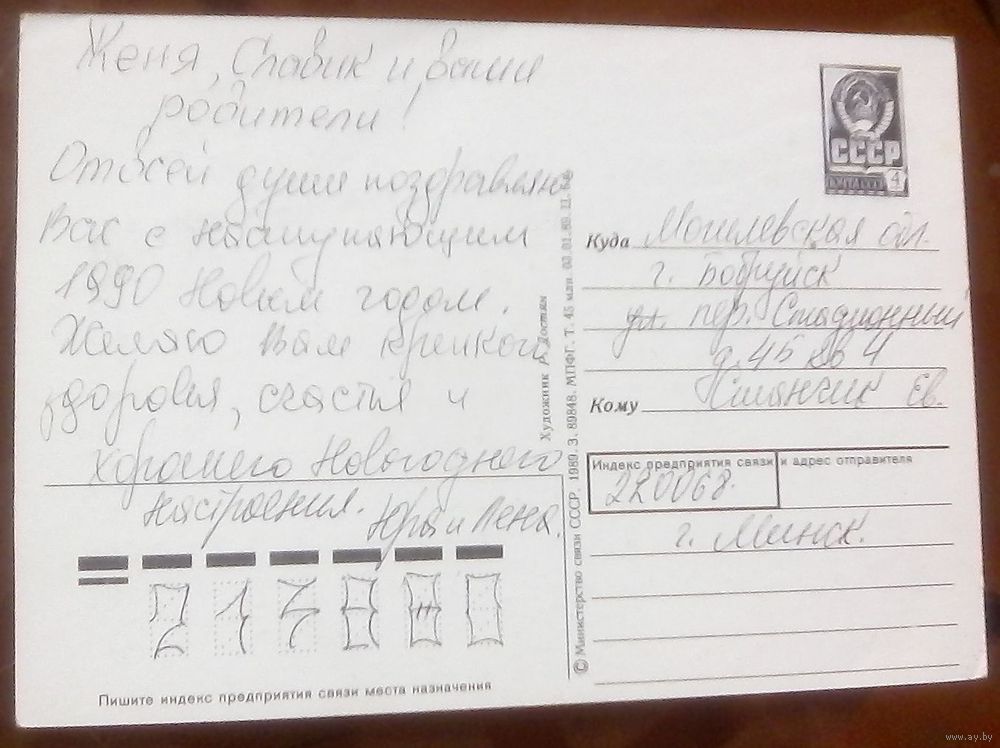 Женя, Славик и ваши
родители!
От всей души поздравляю
Вас с наступающим
1990 Новым годом.
Желаю Вам крепкого
здоровья, счастья и
хорошего Новогоднего
настроения. Юра и Лена.
Пишите индекс предприятия связи места назначения
Художник Р. Достян
© Министерство связи СССР. 1989. З. 89848. МПФГ. Т. 45 млн. 03.01.89. Ц. 5 к.
СССР
4
Куда Могилевская обл.
г. Бобруйск
ул. пер. Стадионный
д. 45 кв 4
Кому Ев.
Индекс предприятия связи и адрес отправителя
220068.
г. Минск.
www.ay.by